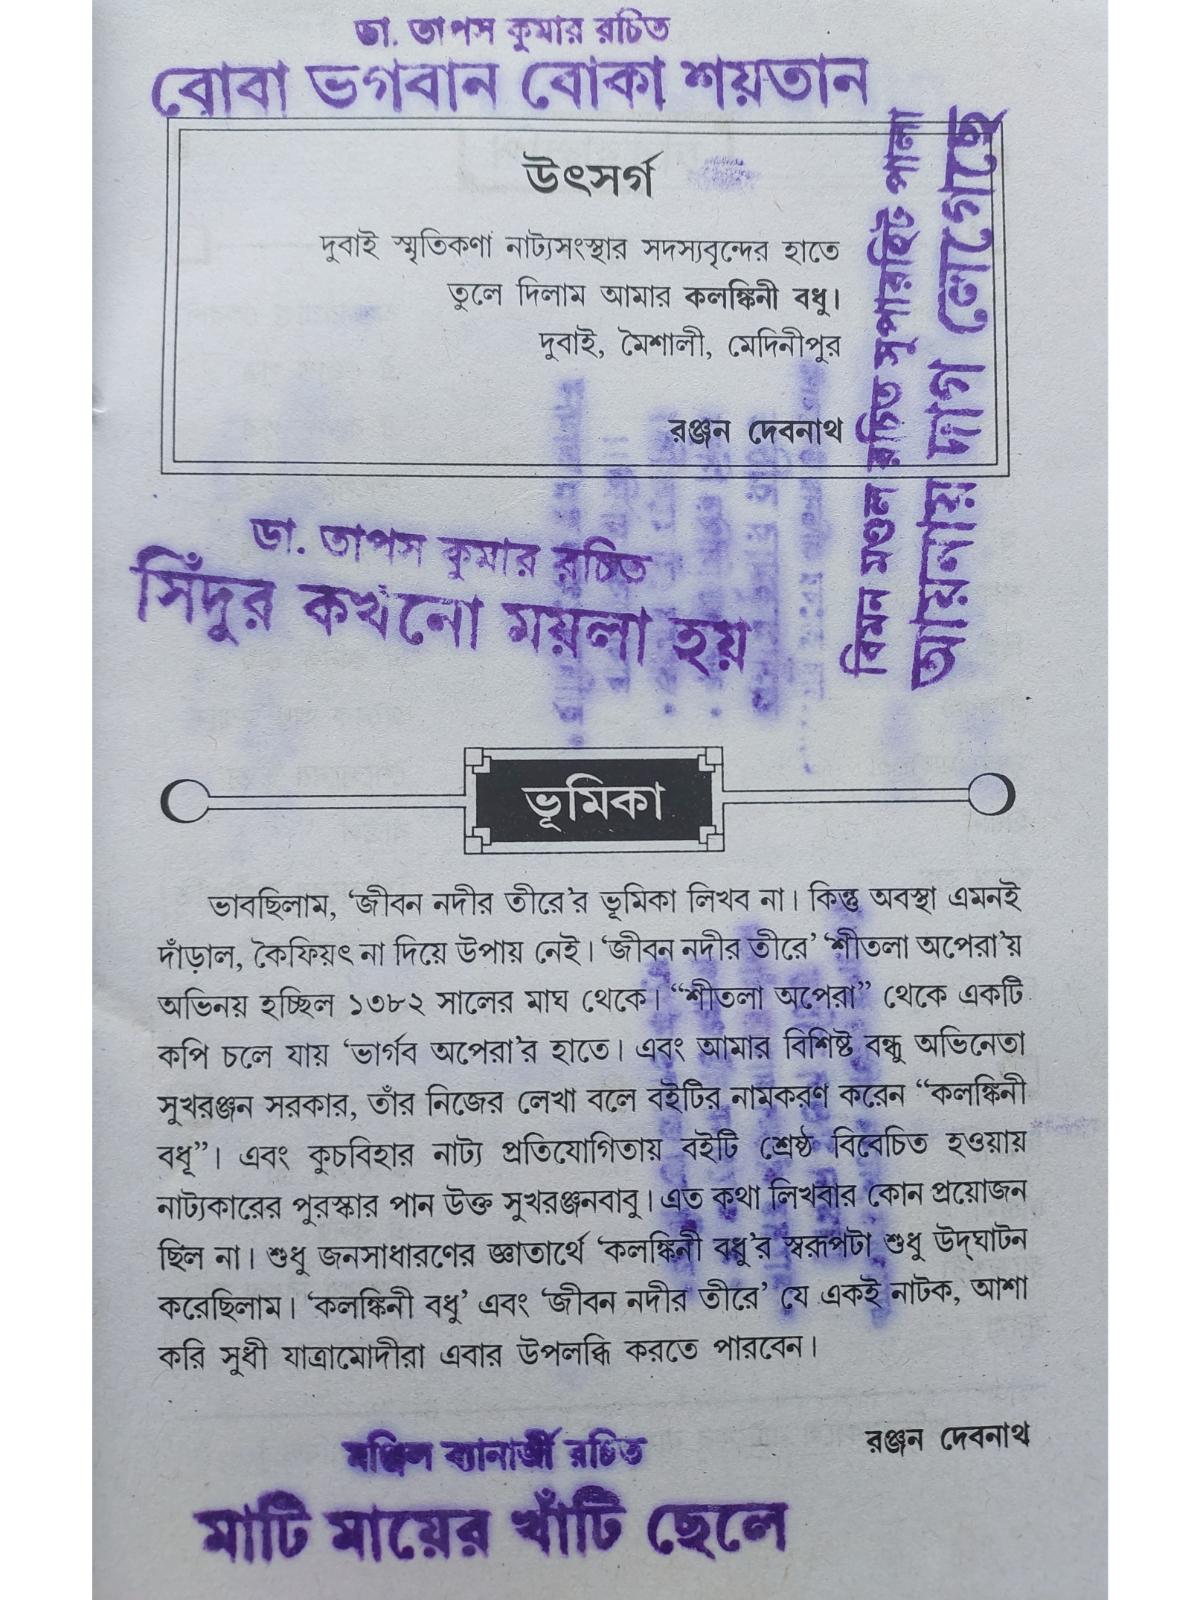 ডা. তাপস কুমার রচিত
বোবা ভগবান বোকা শয়তান
উৎসর্গ
দুবাই স্মৃতিকণা নাট্যসংস্থার সদস্যবৃন্দের হাতে
তুলে দিলাম আমার কলঙ্কিনী বধু।
দুবাই, মৈশালী, মেদিনীপুর
রঞ্জন দেবনাথ
বিমন মণ্ডল রচিত সুপারহিট পালা
আয়নায় দাগ লেগেছে
ডা. তাপস কুমার রচিত
সিঁদুর কখনো ময়লা হয়
ভূমিকা
ভাবছিলাম, ‘জীবন নদীর তীরে’র ভূমিকা লিখব না। কিন্তু অবস্থা এমনই
দাঁড়াল, কৈফিয়ৎ না দিয়ে উপায় নেই। ‘জীবন নদীর তীরে’ ‘শীতলা অপেরা’য়
অভিনয় হচ্ছিল ১৩৮২ সালের মাঘ থেকে। “শীতলা অপেরা” থেকে একটি
কপি চলে যায় ‘ভার্গব অপেরা’র হাতে। এবং আমার বিশিষ্ট বন্ধু অভিনেতা
সুখরঞ্জন সরকার, তাঁর নিজের লেখা বলে বইটির নামকরণ করেন “কলঙ্কিনী
বধূ”। এবং কুচবিহার নাট্য প্রতিযোগিতায় বইটি শ্রেষ্ঠ বিবেচিত হওয়ায়
নাট্যকারের পুরস্কার পান উক্ত সুখরঞ্জনবাবু। এত কথা লিখবার কোন প্রয়োজন
ছিল না। শুধু জনসাধারণের জ্ঞাতার্থে ‘কলঙ্কিনী বধু’র স্বরূপটা শুধু উদ্‌ঘাটন
করেছিলাম। ‘কলঙ্কিনী বধু’ এবং ‘জীবন নদীর তীরে’ যে একই নাটক, আশা
করি সুধী যাত্রামোদীরা এবার উপলব্ধি করতে পারবেন।
রঞ্জন দেবনাথ
ব্যানার্জী রচিত
মাটি মায়ের খাঁটি ছেলে